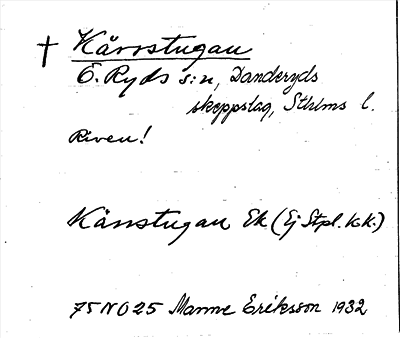 † Kärrstugan
Ö. Ryds s:n, Danderyds
skeppslag, Sthlms l.
Riven!
Kärrstugan Ek (Ej Stpl. k.k.)
75NO25 Manne Eriksson 1932